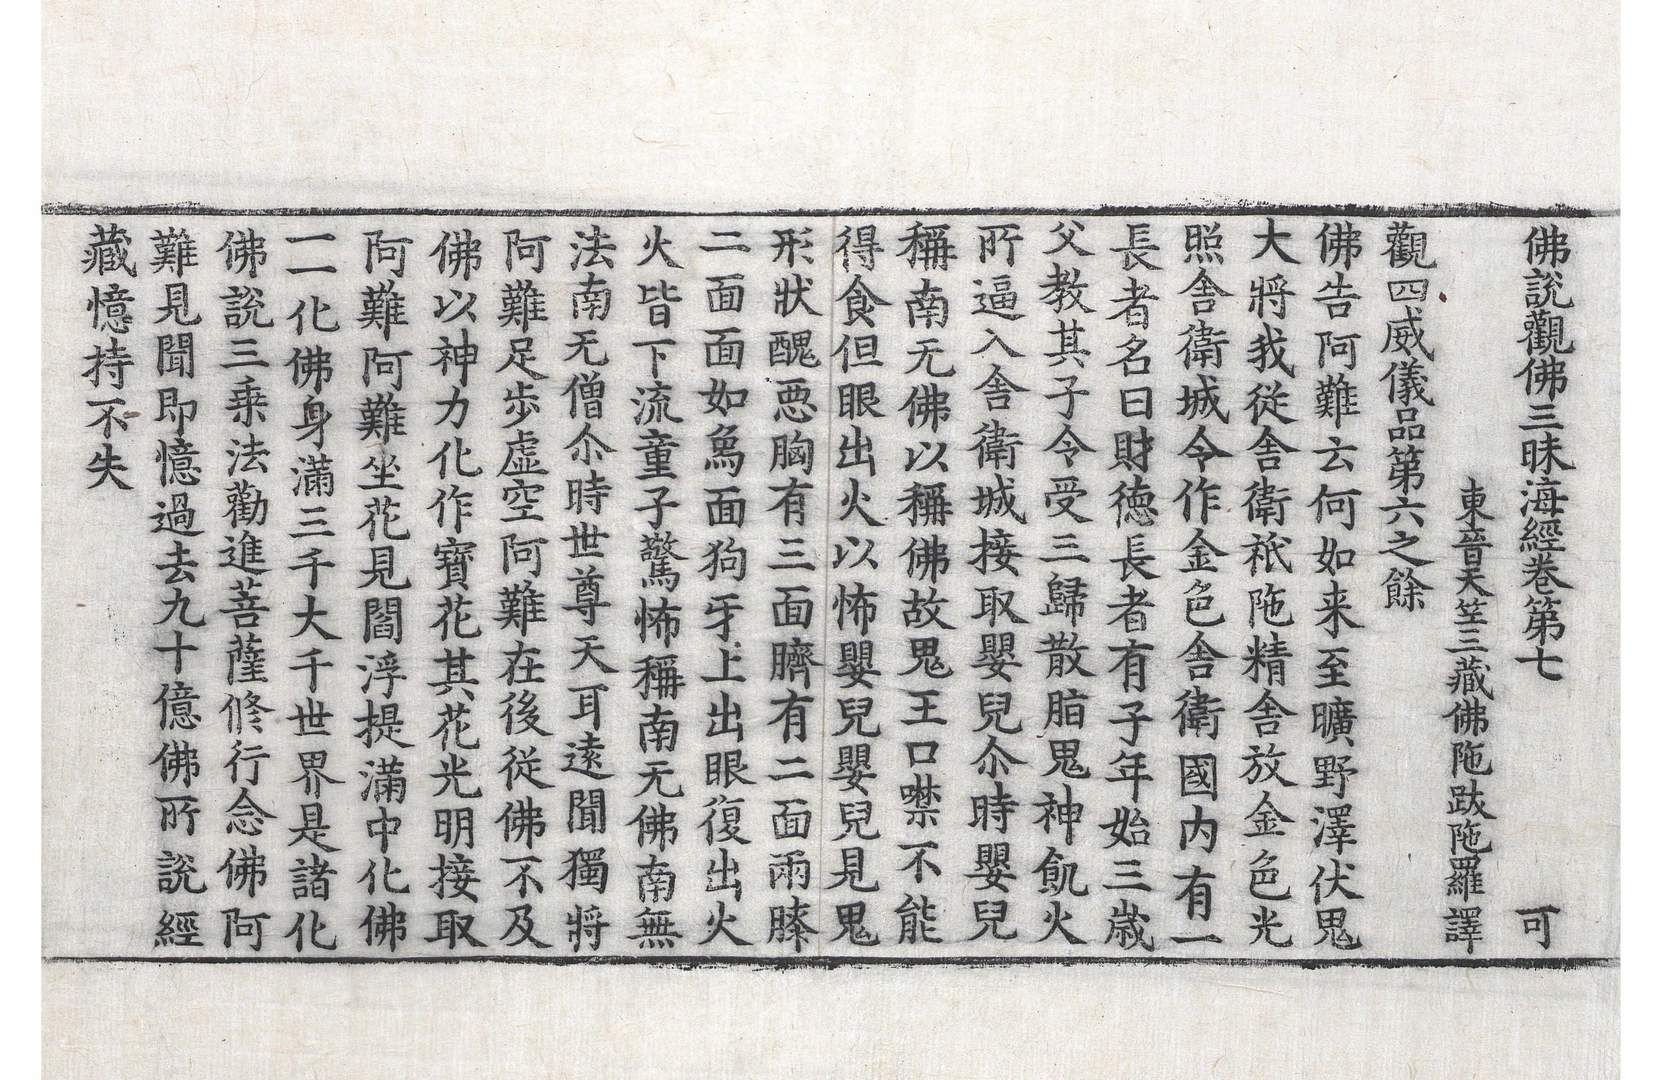 佛說觀佛三昧海經卷第七　可
東晉天竺三藏佛陁跋陁羅譯
觀四威儀品第六之餘
佛告阿難云何如来至曠野澤伏鬼
大將我從舍衛祇陁精舍放金色光
照舍衛城令作金色舍衛國内有一
長者名曰財德長者有子年始三歲
父教其子令受三歸散脂鬼神飢火
所逼入舍衛城接取嬰兒尒時嬰兒
稱南无佛以稱佛故鬼王口噤不能
得食但眼出火以怖嬰兒嬰兒見鬼
形狀醜惡胸有三面臍有二面兩膝
二面面如象面狗牙上出眼復出火
火皆下流童子驚怖稱南无佛南無
法南无僧尒時世尊天耳遠聞獨將
阿難足步虛空阿難在後從佛不及
佛以神力化作寶花其花光明接取
阿難阿難坐花見閻浮提滿中化佛
一一化佛身滿三千大千世界是諸化
佛說三乗法勸進菩薩修行念佛阿
難見聞即憶過去九十億佛所說經
藏憶持不失